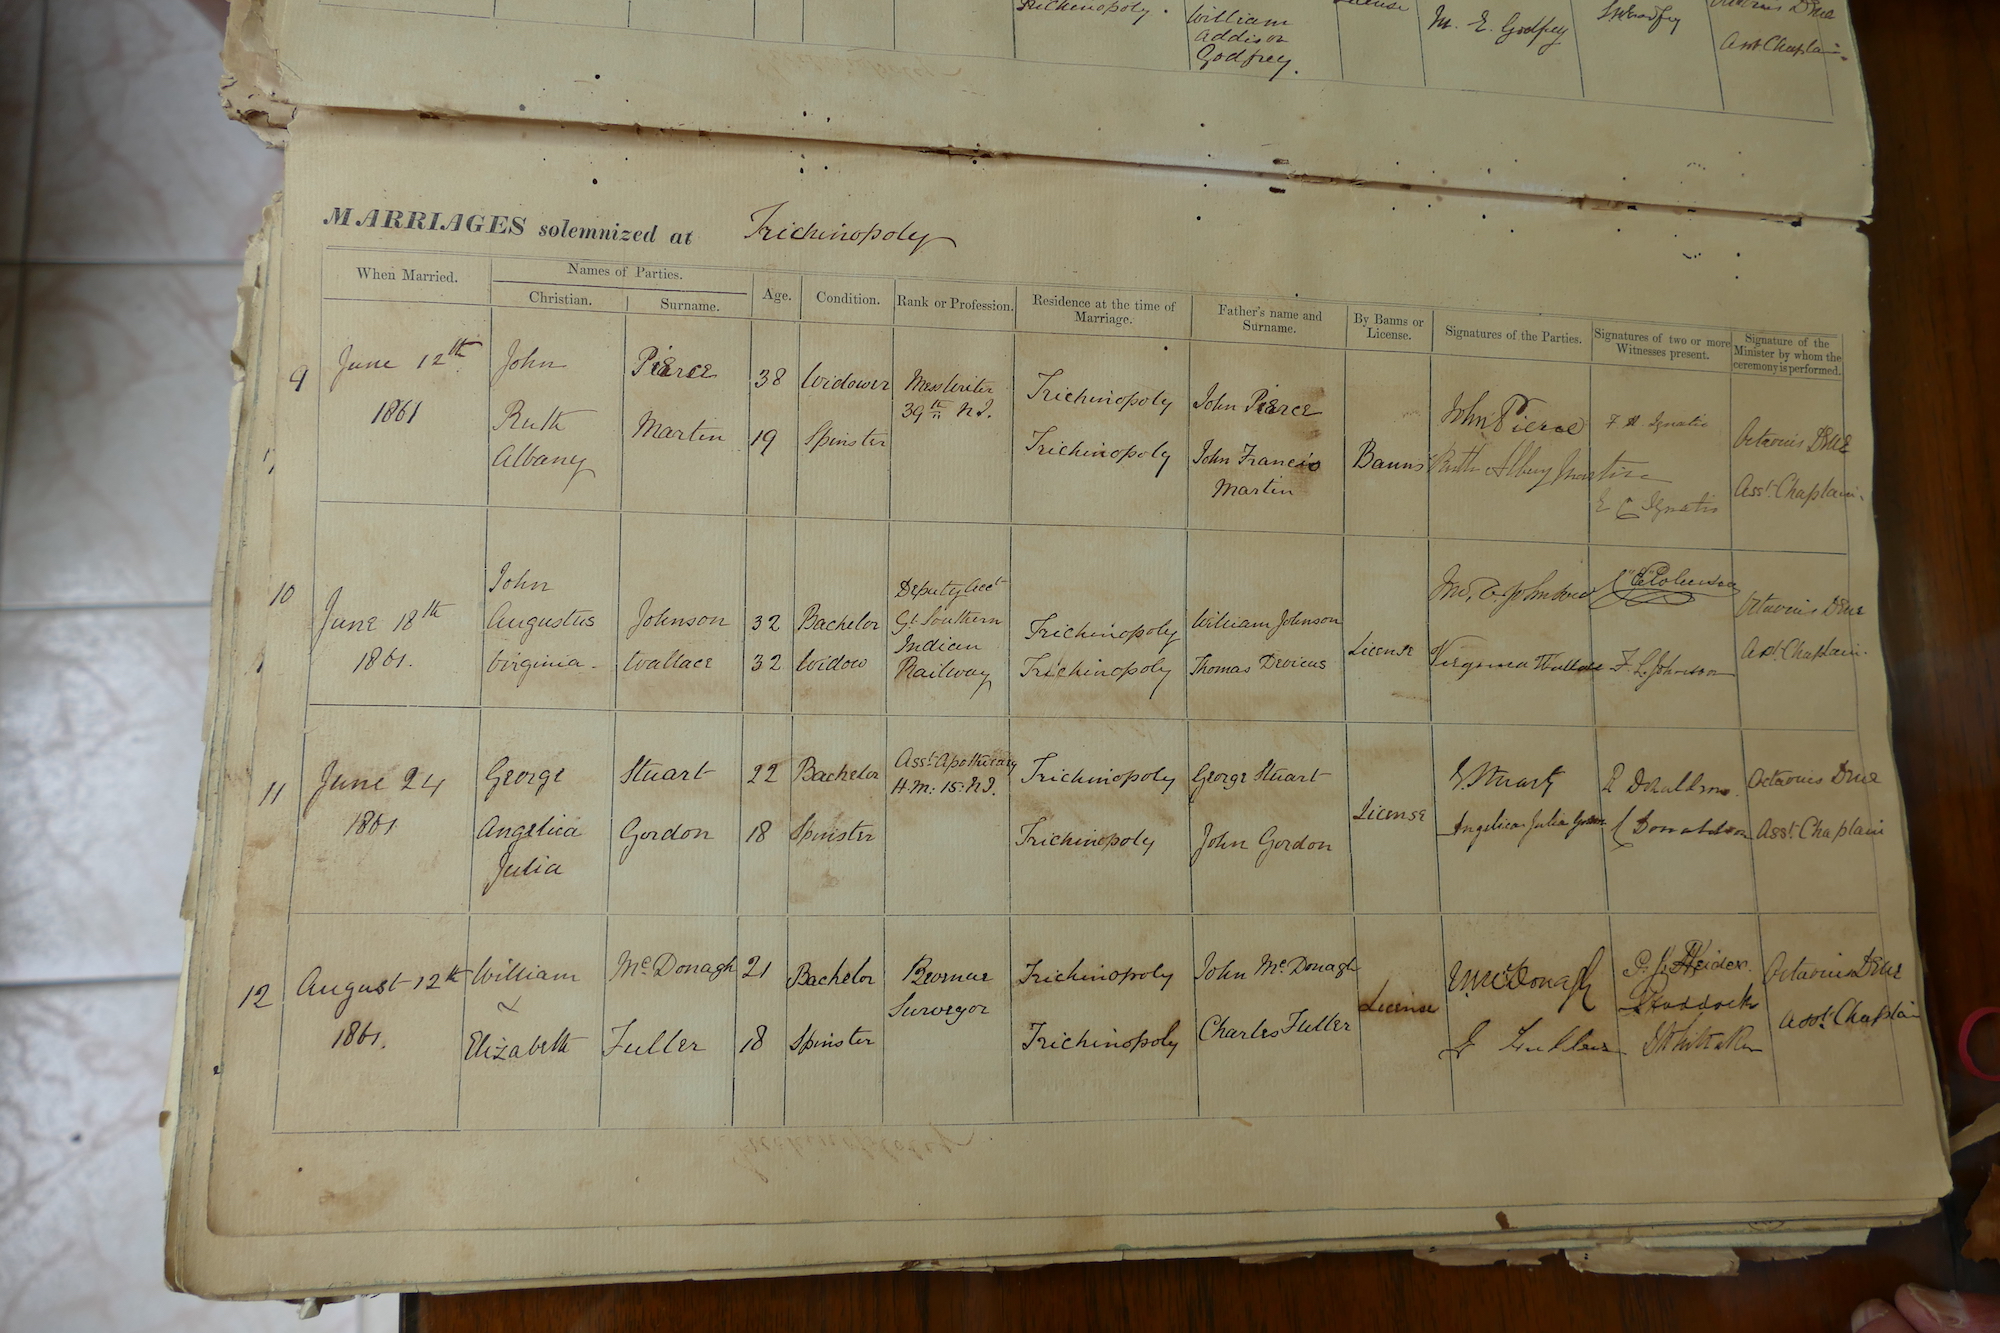 Trichinopoly.
William
Addison
Godfrey.
License
M. E. Godfrey
Asst Chaplain.
MARRIAGES solemnized at Trichinopoly
When Married.
Names of Parties.
Christian.
Surname.
Age.
Condition.
Rank or Profession.
Residence at the time of
Marriage.
Father's name and
Surname.
By Banns or
License.
Signatures of the Parties.
Signatures of two or more
Witnesses present.
Signature of the
Minister by whom the
ceremony is performed.
9
June 12th
1861
John
Ruth
Albany
Pierce
Martin
38
19
Widower
Spinster
Mess Writer
39th N.I.
Trichinopoly
Trichinopoly
John Pierce
John Francis
Martin
Banns
John Pierce
Ruth Albany Martin
F A Ignatio
E C Ignatio
Octavius Dene
Asst. Chaplain.
10
June 18th
1861.
John
Augustus
Virginia
Johnson
Wallace
32
32
Bachelor
Widow
Deputy Acct
Gt. Southern
Indian
Railway
Trichinopoly
Trichinopoly
William Johnson
Thomas Devieus
License
Jno. A. Johnson
Virginia Wallace
F. L. Johnson
Octavius Dene
Asst. Chaplain.
11
June 24
1861
George
Angelica
Julia
Stuart
Gordon
22
18
Bachelor
Spinster
Asst. Apothecary
H.M. 15. N.I.
Trichinopoly
Trichinopoly
George Stuart
John Gordon
License
G Stuart
Angelica Julia Gordon
R Donaldson.
C Donaldson
Octavius Dene
Asst. Chaplain
12
August 12th
1861.
William
&
Elizabeth
McDonagh
Fuller
21
18
Bachelor
Spinster
Revenue
Surveyor
Trichinopoly
Trichinopoly
John McDonagh
Charles Fuller
License
W McDonagh
E Fuller
Whittaker
Octavius Dene
Asst. Chaplain